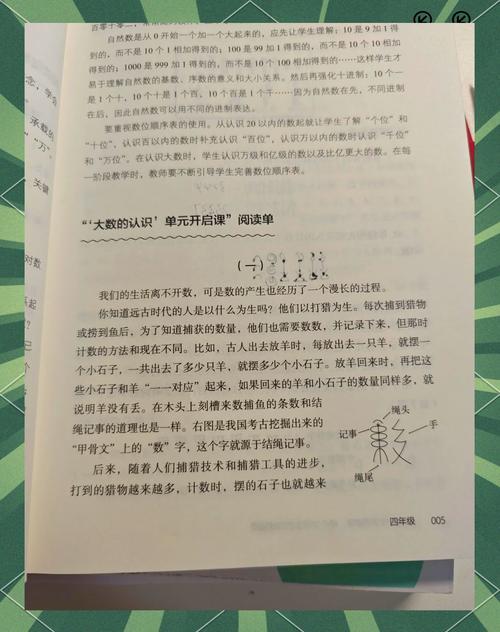 自然数是从0开始一个加一个大起来的，应先让学生理解：10是9加1得
到的，而不是10个1相加得到的；100是99加1得到的，而不是10个10相加
得到的；1000是999加1得到的，而不是10个100相加得到的……这样学生才
易于理解自然数的基数、序数的意义和大小关系。然后再强化十进制：10个一
是1个十，10个十是1个百，10个百是1个千……因为自然数在先，不同进制
在后，因此自然数可以用不同的进制表达。
要重视数位顺序表的使用。从认识20以内的数起就让学生了解“个位”和
“十位”，认识百以内的数时补充认识“百位”，认识万以内的数时认识“千位”
和“万位”。在认识大数时，学生认识万级和亿级的数以及比亿更大的数。在每
一阶段教学时，教师要不断引导学生完善数位顺序表。
“‘大数的认识’单元开启课”阅读单
（一）
我们的生活离不开数，可是数的产生也经历了一个漫长的过程。
你知道远古时代的人是以什么为生吗？他们以打猎为生。每次捕到猎物
或捞到鱼后，为了知道捕获的数量，他们也需要数数，并记录下来，但那时
计数的方法和现在不同。比如，古人出去放羊时，每放出去一只羊，就摆一
个小石子，一共出去了多少只羊，就摆多少个小石子。放羊回来时，再把这
些小石子和羊“一一对应”起来，如果回来的羊和小石子的数量同样多，就
说明羊没有丢。在木头上刻槽来数捕鱼的条数和结
绳记事的道理也是一样。右图是我国考古挖掘出来的
“甲骨文”上的“数”字，这个字就源于结绳记事。
后来，随着人们捕猎技术和捕猎工具的进步，
打到的猎物越来越多，计数时，摆的石子也就越来
绳头
记事
手
绳尾
四年级 005
对数
关键
“万”